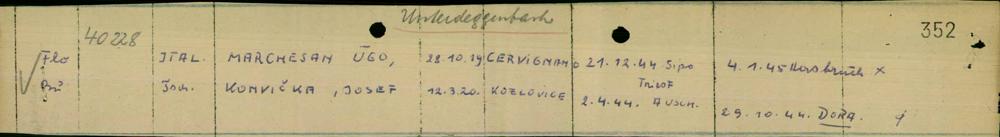 Unterdeggenbach
352
40228
Flo ITAL. MARCHESAN UGO, 28.10.19 CERVIGNANO 21.12.44 Sipo Triest 4.1.45 Hersbruck x
Isch. KONVIČKA, JOSEF 12.3.20. KOZLOVICE 2.4.44. AUSCH. 29.10.44. DORA.